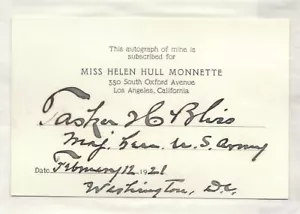 This autograph of mine is
subscribed for
MISS HELEN HULL MONNETTE
350 South Oxford Avenue
Los Angeles, California
Tasker H Bliss
Maj. Gen. U. S. Army
Date. February 12 1921
Washington, D.C.